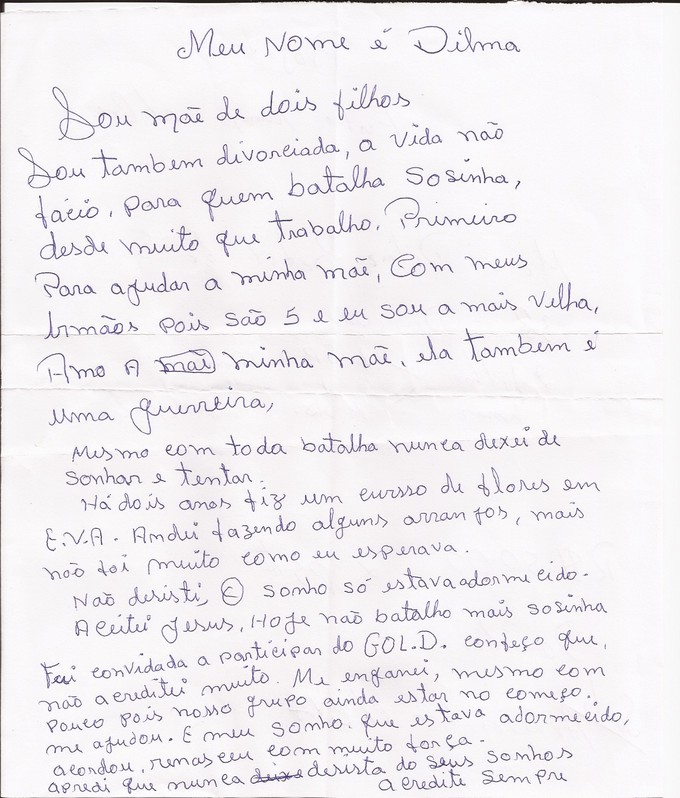 Meu Nome é Dilma
Sou mãe de dois filhos
Sou tambem divorciada, a vida não
fácio, para quem batalha sosinha,
desde muito que trabalho. Primeiro
Para ajudar a minha mãe, Com meus
Irmãos pois são 5 e eu sou a mais velha,
Amo A mãe minha mãe, ela tambem é
uma guerreira,
Mesmo com toda batalha nunca dexei de
sonhar e tentar.
Há dois anos fiz um cursso de flores em
E.V.A. Andei fazendo alguns arranjos, mais
não foi muito como eu esperava.
Não desisti, O sonho só estava adormecido.
Aceitei Jesus, Hoje não batalho mais sosinha
Fui convidada a participar do GOL.D. confeço que,
não acreditei muito. Me enganei, mesmo com
pouco pois nosso grupo ainda estar no começo.
me ajudou. E meu sonho. que estava adormecido,
acordou, renasceu com muito força.
apredi que nunca dixe desista do seus sonhos
acredite sempre